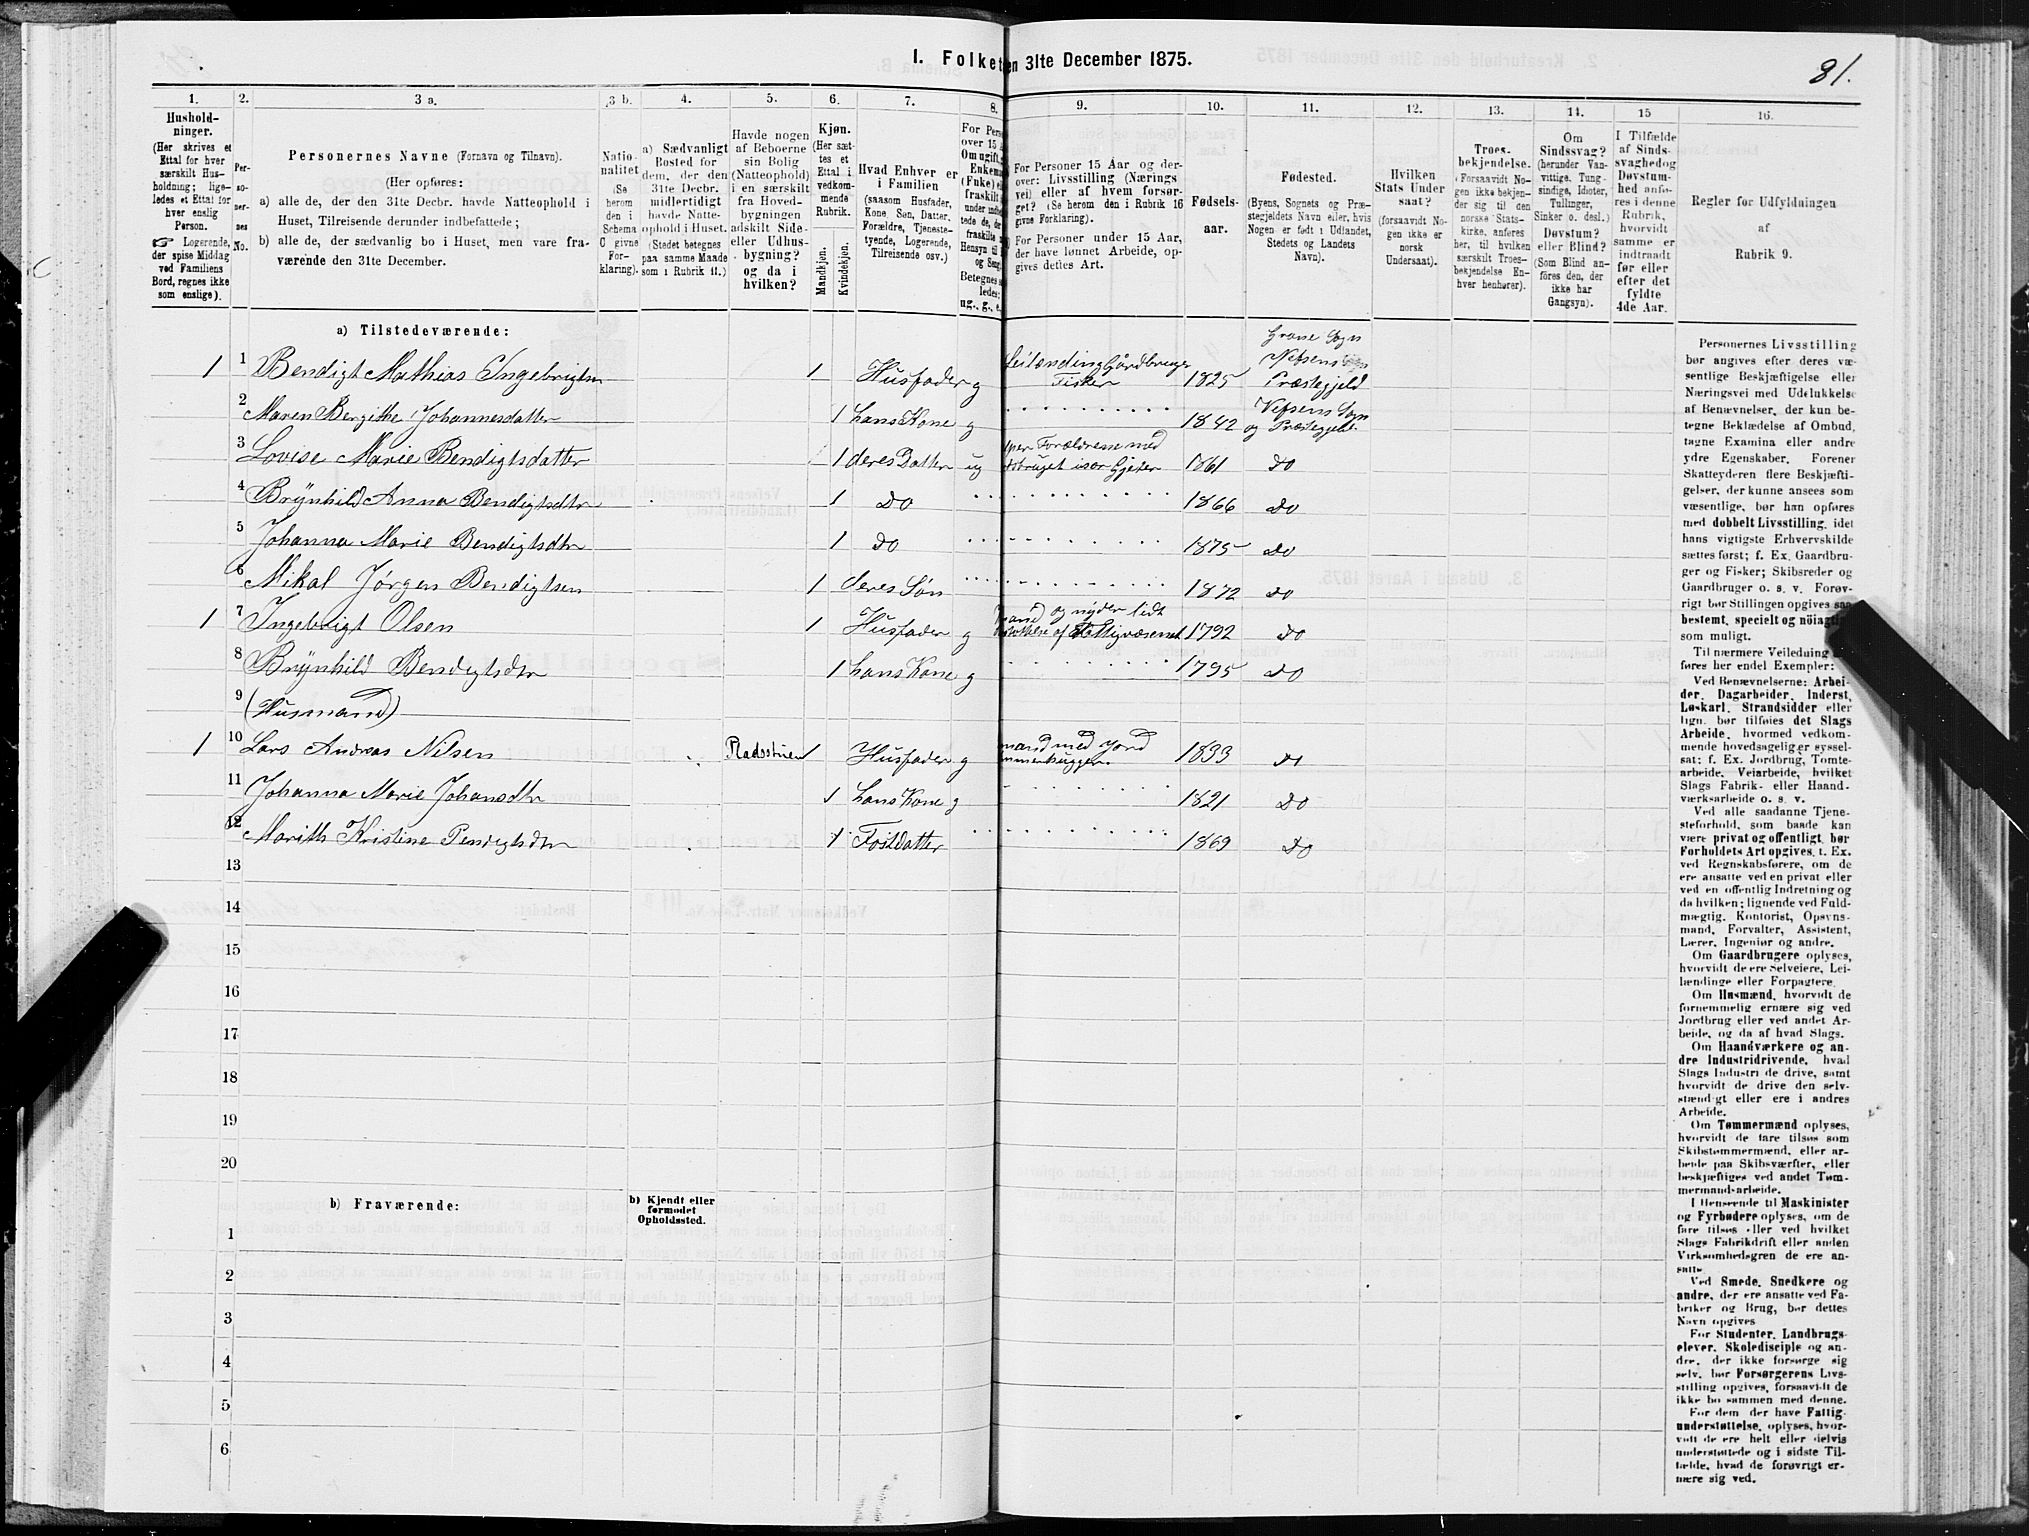 I. Folket en 31te December 1875.
81.
1.
Hushold-
ninger.
(Her skrives et
Ettal for hver
særskilt Hus-
holdning; lige-
ledes et Ettal for
hver enslig
Person.
☞ Logerende,
der spise Middag
ved Familiens
Bord, regnes ikke
som enslige).
2.
Per-
so-
ner-
nes
No.
3 a.
Personernes Navne (Fornavn og Tilnavn).
(Her opføres:
a) alle de, der den 31te Decbr. havde Natteophold i
Huset, Tilreisende derunder indbefattede;
b) alle de, der sædvanlig bo i Huset, men vare fra-
værende den 31te December.
3 b.
Natio-
nalitet
(Se
herom
den i
Schema
C givne
For-
klaring).
4.
a) Sædvanligt
Bosted for
dem, der den
31te Decbr.
midlertidigt
havde Natte-
ophold i Huset.
(Stedet betegnes
paa samme Maade
som i Rubrik 11.)
5.
Havde nogen
af Beboerne
sin Bolig
(Natteophold)
i en særskilt
fra Hoved-
bygningen
adskilt Side-
eller Udhus-
bygning?
og da i
hvilken?
6.
Kjøn.
(Her sæt-
tes et
Ettal i
vedkom-
mende
Rubrik.
Mandkjøn.
Kvindekjøn.
7.
Hvad Enhver er
i Familien
(saasom Husfader,
Kone, Søn, Datter,
Forældre, Tjeneste-
tyende, Logerende,
Tilreisende osv.)
8.
For Pers
over 15 A
Om ugift,
Enkema
(Enke) e
fraskilt
under indb
tede de, de
fraskilte
Hensyn til
og Seng
Betegnes
ledes:
ug., g., e.
9.
For Personer 15 Aar og der-
over: Livsstilling (Nærings
vei) eller af hvem forsør-
get? (Se herom den i Rubrik 16
givne Forklaring).
For Personer under 15 Aar,
der have lønnet Arbeide, op-
gives dettes Art.
10.
Fødsels-
aar.
11.
Fødested.
(Byens, Sognets og Præ-
stegjeldets Navn eller, hvis
Nogen er født i Udlandet,
Stedets og Landets
Navn).
12.
Hvilken
Stats Under
saat?
(forsaavidt No-
gen ikke er
norsk
Undersaat).
13.
Troes-
bekjendelse.
(Forsaavidt No-
gen ikke bekjen-
der sig til den
norske Stats-
kirke, anføres
her, til hvilken
særskilt Troes-
bekjendelse En-
hver henhører).
14.
Om
Sindssvag?
(herunder Van-
vittige, Tung-
sindige, Idioter,
Tullinger,
Sinker o. desl.)
Døvstum?
eller Blind?
(Som Blind an-
føres den, der
ikke har
Gangsyn).
15
I Tilfælde
af Sinds-
svaghed og
Døvstum-
hed anfø-
res i denne
Rubrik,
hvorvidt
samme er
indtraadt
før eller
efter det
fyldte
4de Aar.
16.
Regler for Udfyldningen
af
Rubrik 9.
a) Tilstedeværende:
1 1 Bendigt Mathias Ingebrigtsn 1 Husfader g Leilending Gårdbruger Fisker 1825 Grane Sogn Vefsens Præstegjeld
2 Maren Bergithe Johannesdatter 1 hans Kone g 1842 Vefsens Sogn og Præstegjeld
3 Lovise Marie Bendigtsdatter 1 deres Datter ug Forældrene med Gjeter 1861 Do
4 Brynhild Anna Bendigtsdtr 1 Do 1866 Do
5 Johanna Marie Bendigtsdtr 1 Do 1875 Do
6 Mikal Jørgen Bendigtsen 1 deres Søn 1872 Do
1 7 Ingebrigt Olsen 1 Husfader g og nyder lidt af Fattigvæsenet 1792 Do
8 Brynhild Bendigtsdtr 1 hans Kone g 1795 Do
9 (Husmand)
1 10 Lars Andreas Nilsen Pladsstuen 1 Husfader g mand med jord 1833 Do
11 Johanna Marie Johansdtr 1 hans Kone g 1821 Do
12 Marith Kristine Bendigtsdtr 1 Fostdatter 1869 Do
13
14
15
16
17
18
19
20
b) Fraværende:
b) Kjendt eller
formodet
Opholdssted.
1
2
3
4
5
6
Personernes Livsstilling
bør angives efter deres væ-
sentlige Beskjæftigelse eller
Næringsvei med Udelukkelse
af Benævnelser, der kun be-
tegne Beklædelse af Ombud,
tagne Examina eller andre
ydre Egenskaber. Forener
Skatteyderen flere Beskjæfti-
gelser, der kunne ansees som
væsentlige, bør han opføres
med dobbelt Livsstilling, idet
hans vigtigste Erhvervskilde
sættes først; f. Ex. Gaardbru-
ger og Fisker; Skibsreder og
Gaardbruger o. s. v. Forøv-
rigt bør Stillingen opgives saa
bestemt, specielt og nøiagtig
som muligt.
Til nærmere Veiledning
føres her endel Exempler:
Ved Benævnelserne: Arbei-
der, Dagarbeider, Inderst,
Løskarl, Strandsidder eller
lign. bør tilføies det Slags
Arbeide, hvormed vedkom-
mende hovedsagelig er syssel-
sat; f. Ex. Jordbrug, Tomte-
arbeide, Veiarbeide, hvilket
Slags Fabrik- eller Haand-
værksarbeide o. s. v.
Ved alle saadanne Tjene-
steforhold, som baade kan
være privat og offentligt, bør
Forholdets Art opgives, t. Ex.
ved Regnskabsførere, om de
ere ansatte ved en privat eller
ved en offentlig Indretning og
da hvilken; lignende ved Fuld-
mægtig, Kontorist, Opsyns-
mand, Forvalter, Assistent,
Lærer, Ingeniør og andre.
Om Gaardbrugere oplyses,
hvorvidt de ere Selveiere, Lei-
lændinge eller Forpagtere.
Om Husmænd, hvorvidt de
fornemmelig ernære sig ved
Jordbrug eller ved andet Ar-
beide, og da af hvad Slags.
Om Haandværkere og an-
dre Industridrivende, hvad
Slags Industri de drive, samt
hvorvidt de drive den selv-
stændigt eller ere i andres
Arbeide.
Om Tømmermænd oplyses,
hvorvidt de fare tilsøs som
Skibstømmermænd, eller ar-
beide paa Skibsværfter, eller
beskjæftiges ved andet Tøm-
mermandsarbeide.
I Henseende til Maskinister
og Fyrbødere oplyses, om de
fare tilsøs eller ved hvilket
Slags Fabrikdrift eller anden
Virksomhedsgren de ere an-
satte.
Ved Smede, Snedkere og
andre, der ere ansatte ved Fa-
briker og Brug, bør dettes
Navn opgives
For Studenter, Landbrugs-
elever, Skoledisciple og an-
dre, der ikke forsørge sig
selv, bør Forsørgerens Livs-
stilling opgives, forsaavidt de
ikke bo sammen med denne.
For dem, der have Fattig-
understøttelse, oplyses, hvor-
vidt de ere helt eller delvis
understøttede og i sidste Til-
fælde, hvad de forøvrigt er-
nære sig ved.